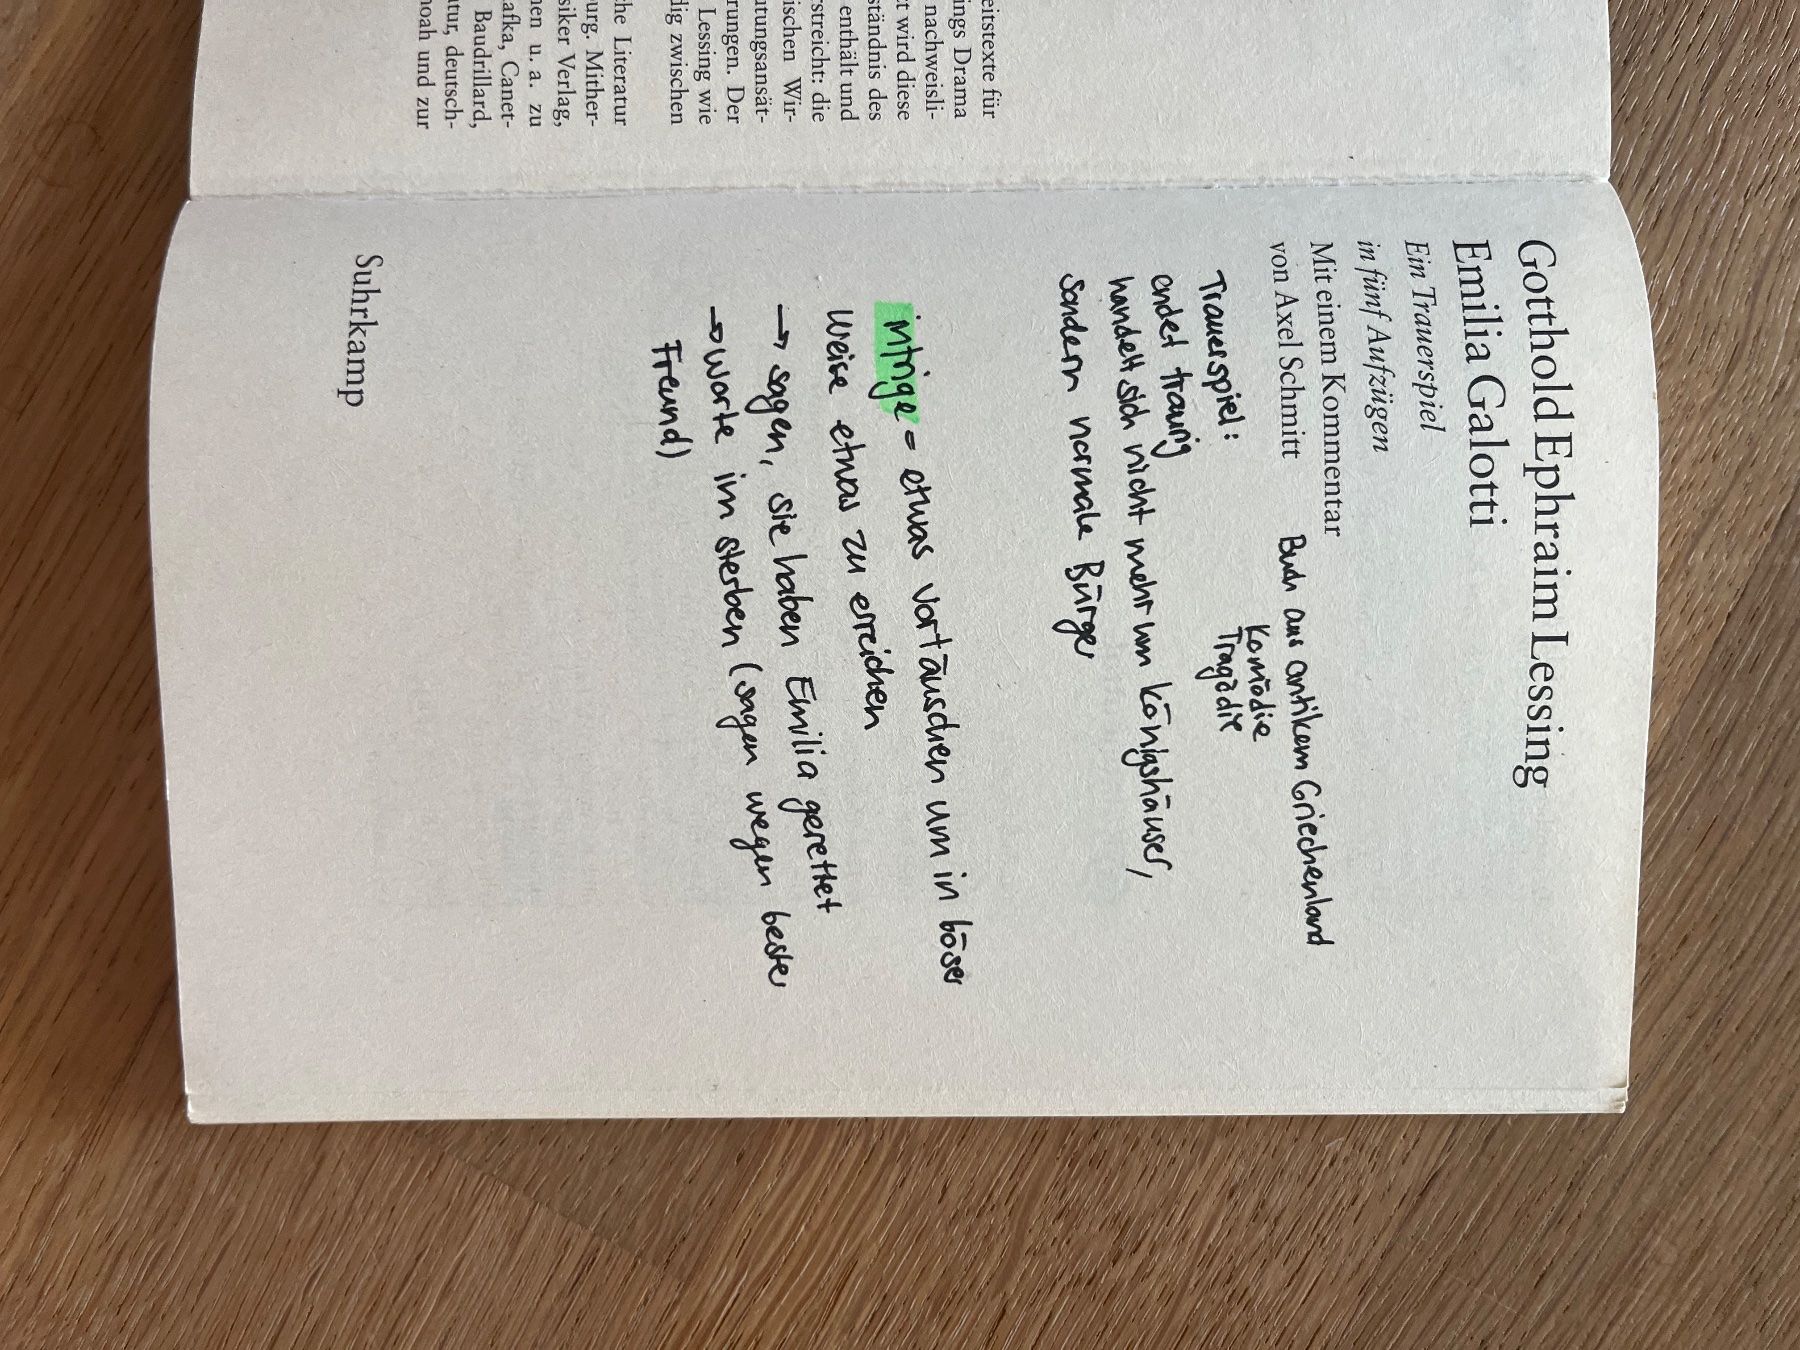 eitstexte für
ings Drama
nachweisli-
t wird diese
ständnis des
enthält und
streicht: die
ischen Wir-
tungsansät-
rungen. Der
Lessing wie
dig zwischen
che Literatur
urg. Mither-
siker Verlag,
nen u. a. zu
afka, Canet-
Baudrillard,
tur, deutsch-
noah und zur
Gotthold Ephraim Lessing
Emilia Galotti
Ein Trauerspiel
in fünf Aufzügen
Mit einem Kommentar
von Axel Schmitt
Buch aus antikem Griechenland
Komödie
Tragödie
Trauerspiel:
endet traurig
handelt sich nicht mehr um Königshäuser,
sondern normale Bürger
intrige = etwas vortäuschen um in böser
Weise etwas zu erreichen
→ sagen, sie haben Emilia gerettet
→ Worte im sterben (sagen wegen bester
Freund)
Suhrkamp